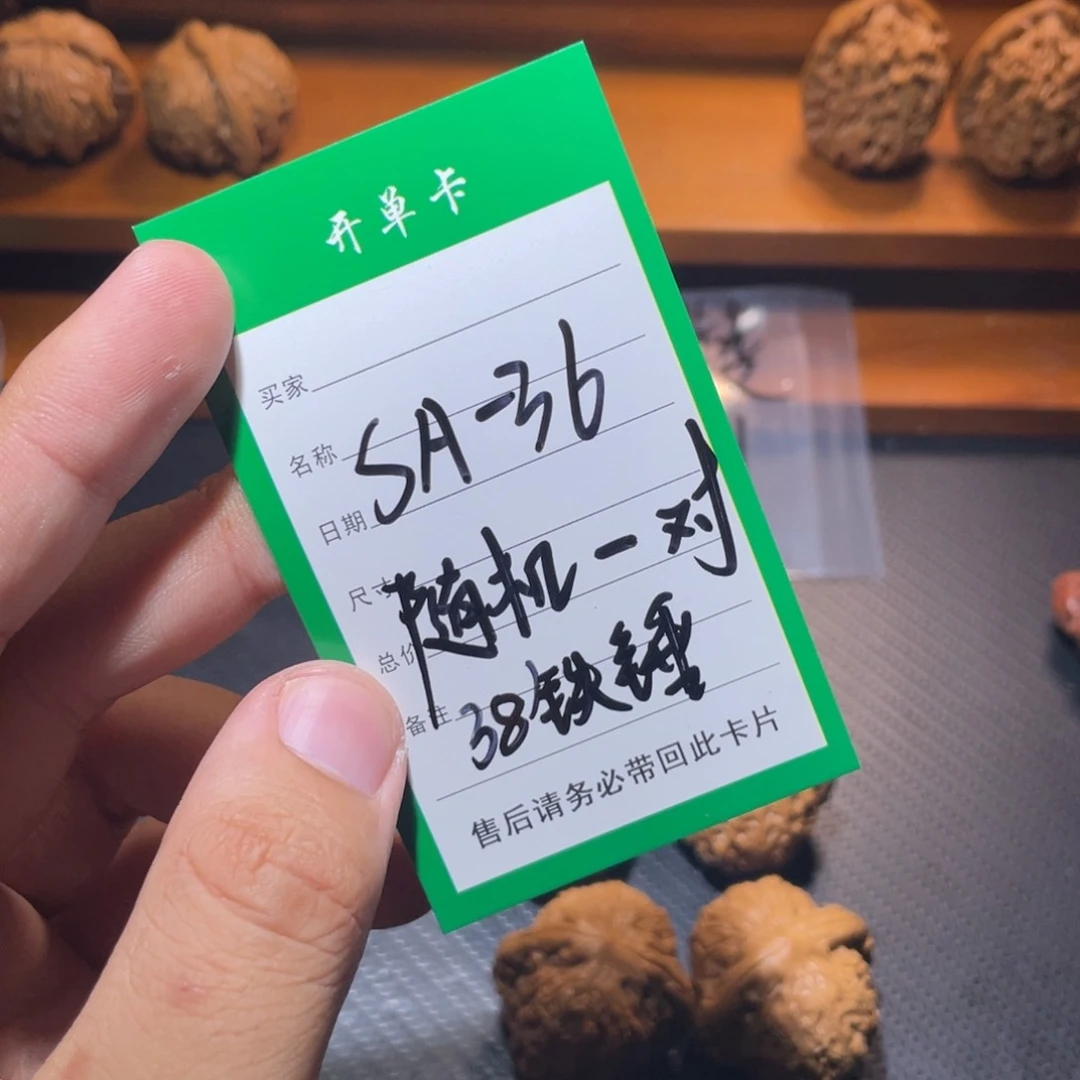 开单卡
买家
名称
SA-36
日期
尺寸
随机一对
总价
38铁锤
备注
售后请务必带回此卡片